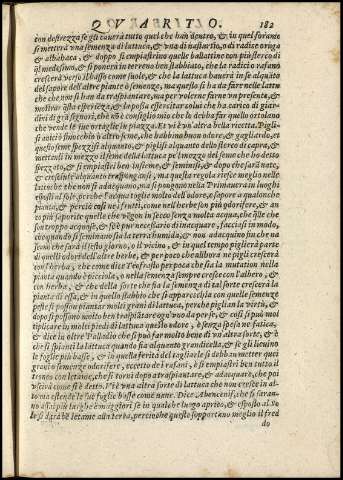 QVARTO. 182
con destrezza se gli cauerà tutto quel che han dentro, & in quel forame
si metterà vna semenza di lattuca, & vna di nasturtio, o di radice o ruga
& albahaca, & doppo si empiastrino quelle ballottine con più sterco di
ql medesimo, & si ponerà in terreno ben stabbiato, che la radice o rafano
crescerà verso il basso come suole, & che la lattuca hauerà in se alquāto
del sapore dell'altre piante o semenza, ma questo si ha da fare nelle lattu
che che non si han da traspiantare, ma per volerne fare vn presente, &
mostrar vna esperienza, & le possa essercitar colui che ha carico di giar-
dini di grā signori, che nō è consiglio mio che lo debba far quello ortolano
che vende le sue ortaglie in piazza. Et vi è vn'altra bella ricetta. Piglie
si noti & finocchio & altro seme, che habbino buon odore, & gagliardo, et
questo seme spezzisi alquanto, & piglisi alquanto dello sterco di capra, &
mettassi in mezzo il seme della lattuca pe'l mezzo del seme che ho detto
spezzato, & si empiastri ben insieme, & seminisi, & dopo che sarà nate,
& cresciute alquanto traspongansi, ma questa regola riesce meglio nelle
lattuche che non si adacquano, ma si pongono nella Primauera in luoghi
esposti al sole, perche l'acqua toglie molto dell'odore, & sapore a qualonche
pianta, & perciò cosi ne i frutti, come nell'herbe son piu odorifere, & an
co più saporite quelle che vēgon in secco senza molta acqua, che q̄lle che
son troppo acquose, & se è pur necessario di inacquare, facciasi in modo,
che quando si seminano sia la terra humida, & non adacquino fin che na
scano che sarà il sesto giorno, o li vicino, & in quel tempo piglierà parte
di quelli odori dell'altre herbe, & per poco che allhora ne pigli crescerà
con l'herba, che come dice Teofrasto per poca che sia la mutation nella
pianta quando è piccola, o nella semenza sempre cresce con l'albero, &
con l'herba, & che della sorte che fia la semenza di tal sorte crescerà la
pianta di essa, & in questo stabbio che si apparecchia con quelle semenze
peste si possono piantar molti grani di lattuca, perche piglian la vertù, &
dopo si possono molto ben traspiātare ogn'vno da per se, & cosi si può mol
tiplicare in molti piedi di lattuca questo odore, & senza spesa ne fatica,
& dice in oltre Palladio che si può far molto bene di vn'altra sorte, & è
che si spianti la lattuca quando sia alquanto grandicella, & se gli leuino
le foglie più basse, & in quella ferita del tagliarle si debban metter quei
grani o semenze odorifere, eccetto de i rafani, & si empiastri ben tutto il
tronco con letame, che si torni dopo a traspiantare, & adacquare, che poi
vscirà come si è detto. Vi è vna altra sorte di lattuca che non cresce in al-
to ma estende le sue foglie basse come nane. Dice Abencenif, che si faran-
no assai più larghe & maggiori se in qualche luogo aprito, & esposto al So
le si darà bē letame alla terra, percioche questo sopportano meglio il fred
do